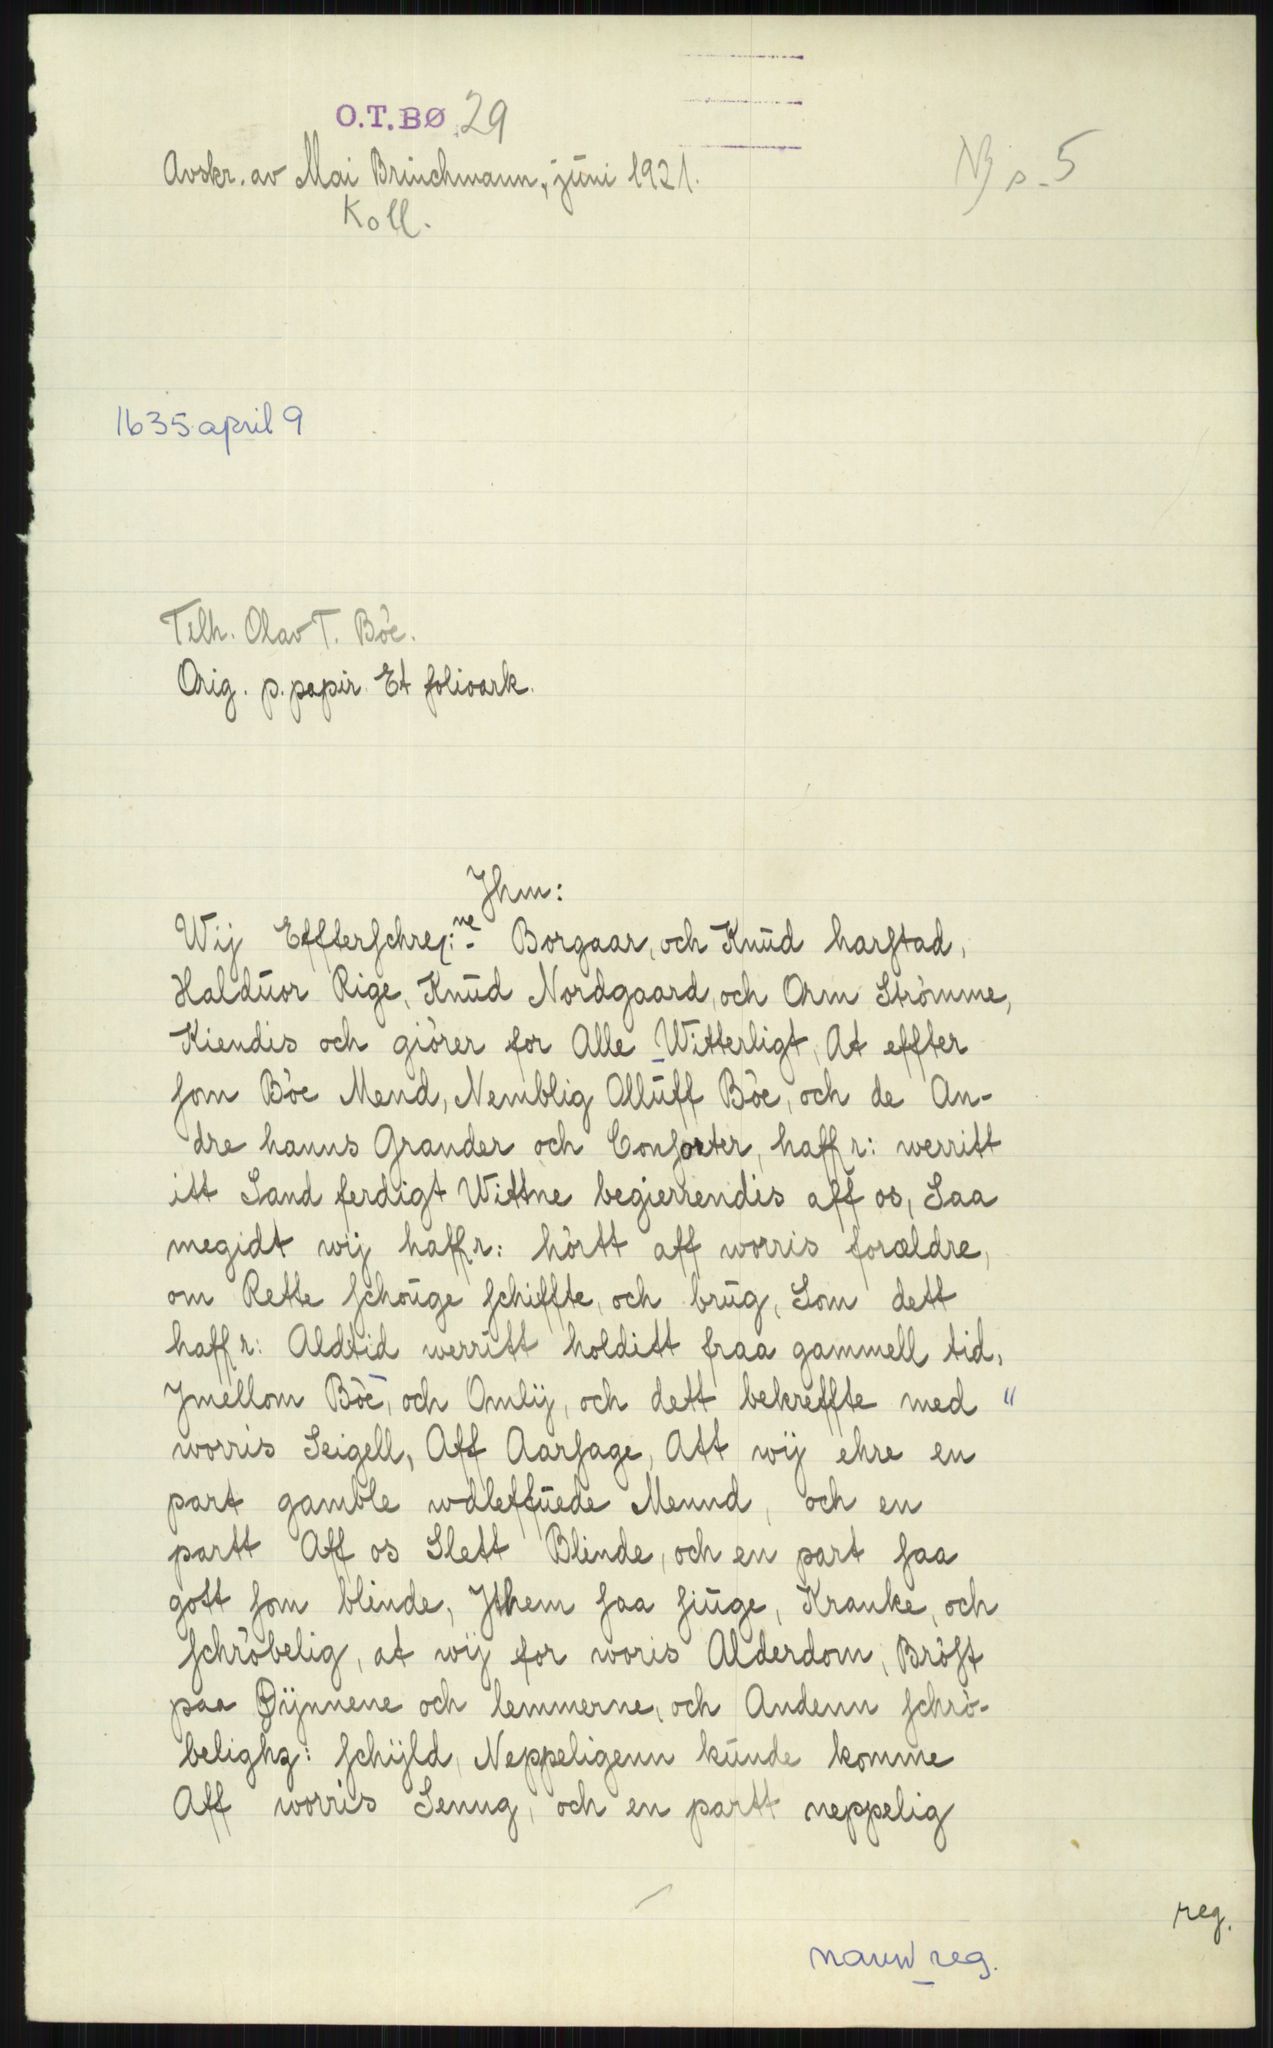 O.T.BØ 29
Avskr. av Mai Brinchmann, juni 1921.
Koll.
Nj s. 5
1635 april 9
Tilh. Olav T. Böe.
Orig. p. papir. Et folioark.
Jhm:
Wij Effterschref:ne Borgaar, och Knud harstad,
Halduor Rige, Knud Nordgaard, och Orm Strömme,
Kiendis och giörer for Alle Witterligt, At effter
som Böe Mend, Nemblig Olluff Böe, och de An-
dre hanns Grander och Consorter, haffr: werritt
itt Sand ferdigt Wittne begierrendis aff os, Saa
megidt wij haffr: hörtt aff worris forældre,
om Rette schouge schiffte, och brug, Som dett
haffr: Aldtid werritt holditt fraa gammell tid,
Jmellom Böe, och Omlij, och dett bekreffte med "
worris Seigell, Aff Aarsage, Att wij ehre en
part gamble wdleffuede Mennd, och en
partt Aff os Slett Blinde, och en part saa
gott som blinde, Jthem saa siuge, Kranke, och
schröbelig, at wij for woris Alderdom, Bröst
paa Øijnnene och lemmerne, och Andenn schrö-
belighz: schijld, Neppeligenn kunde komme
Aff worris Senng, och en partt neppelig
reg.
navn reg.